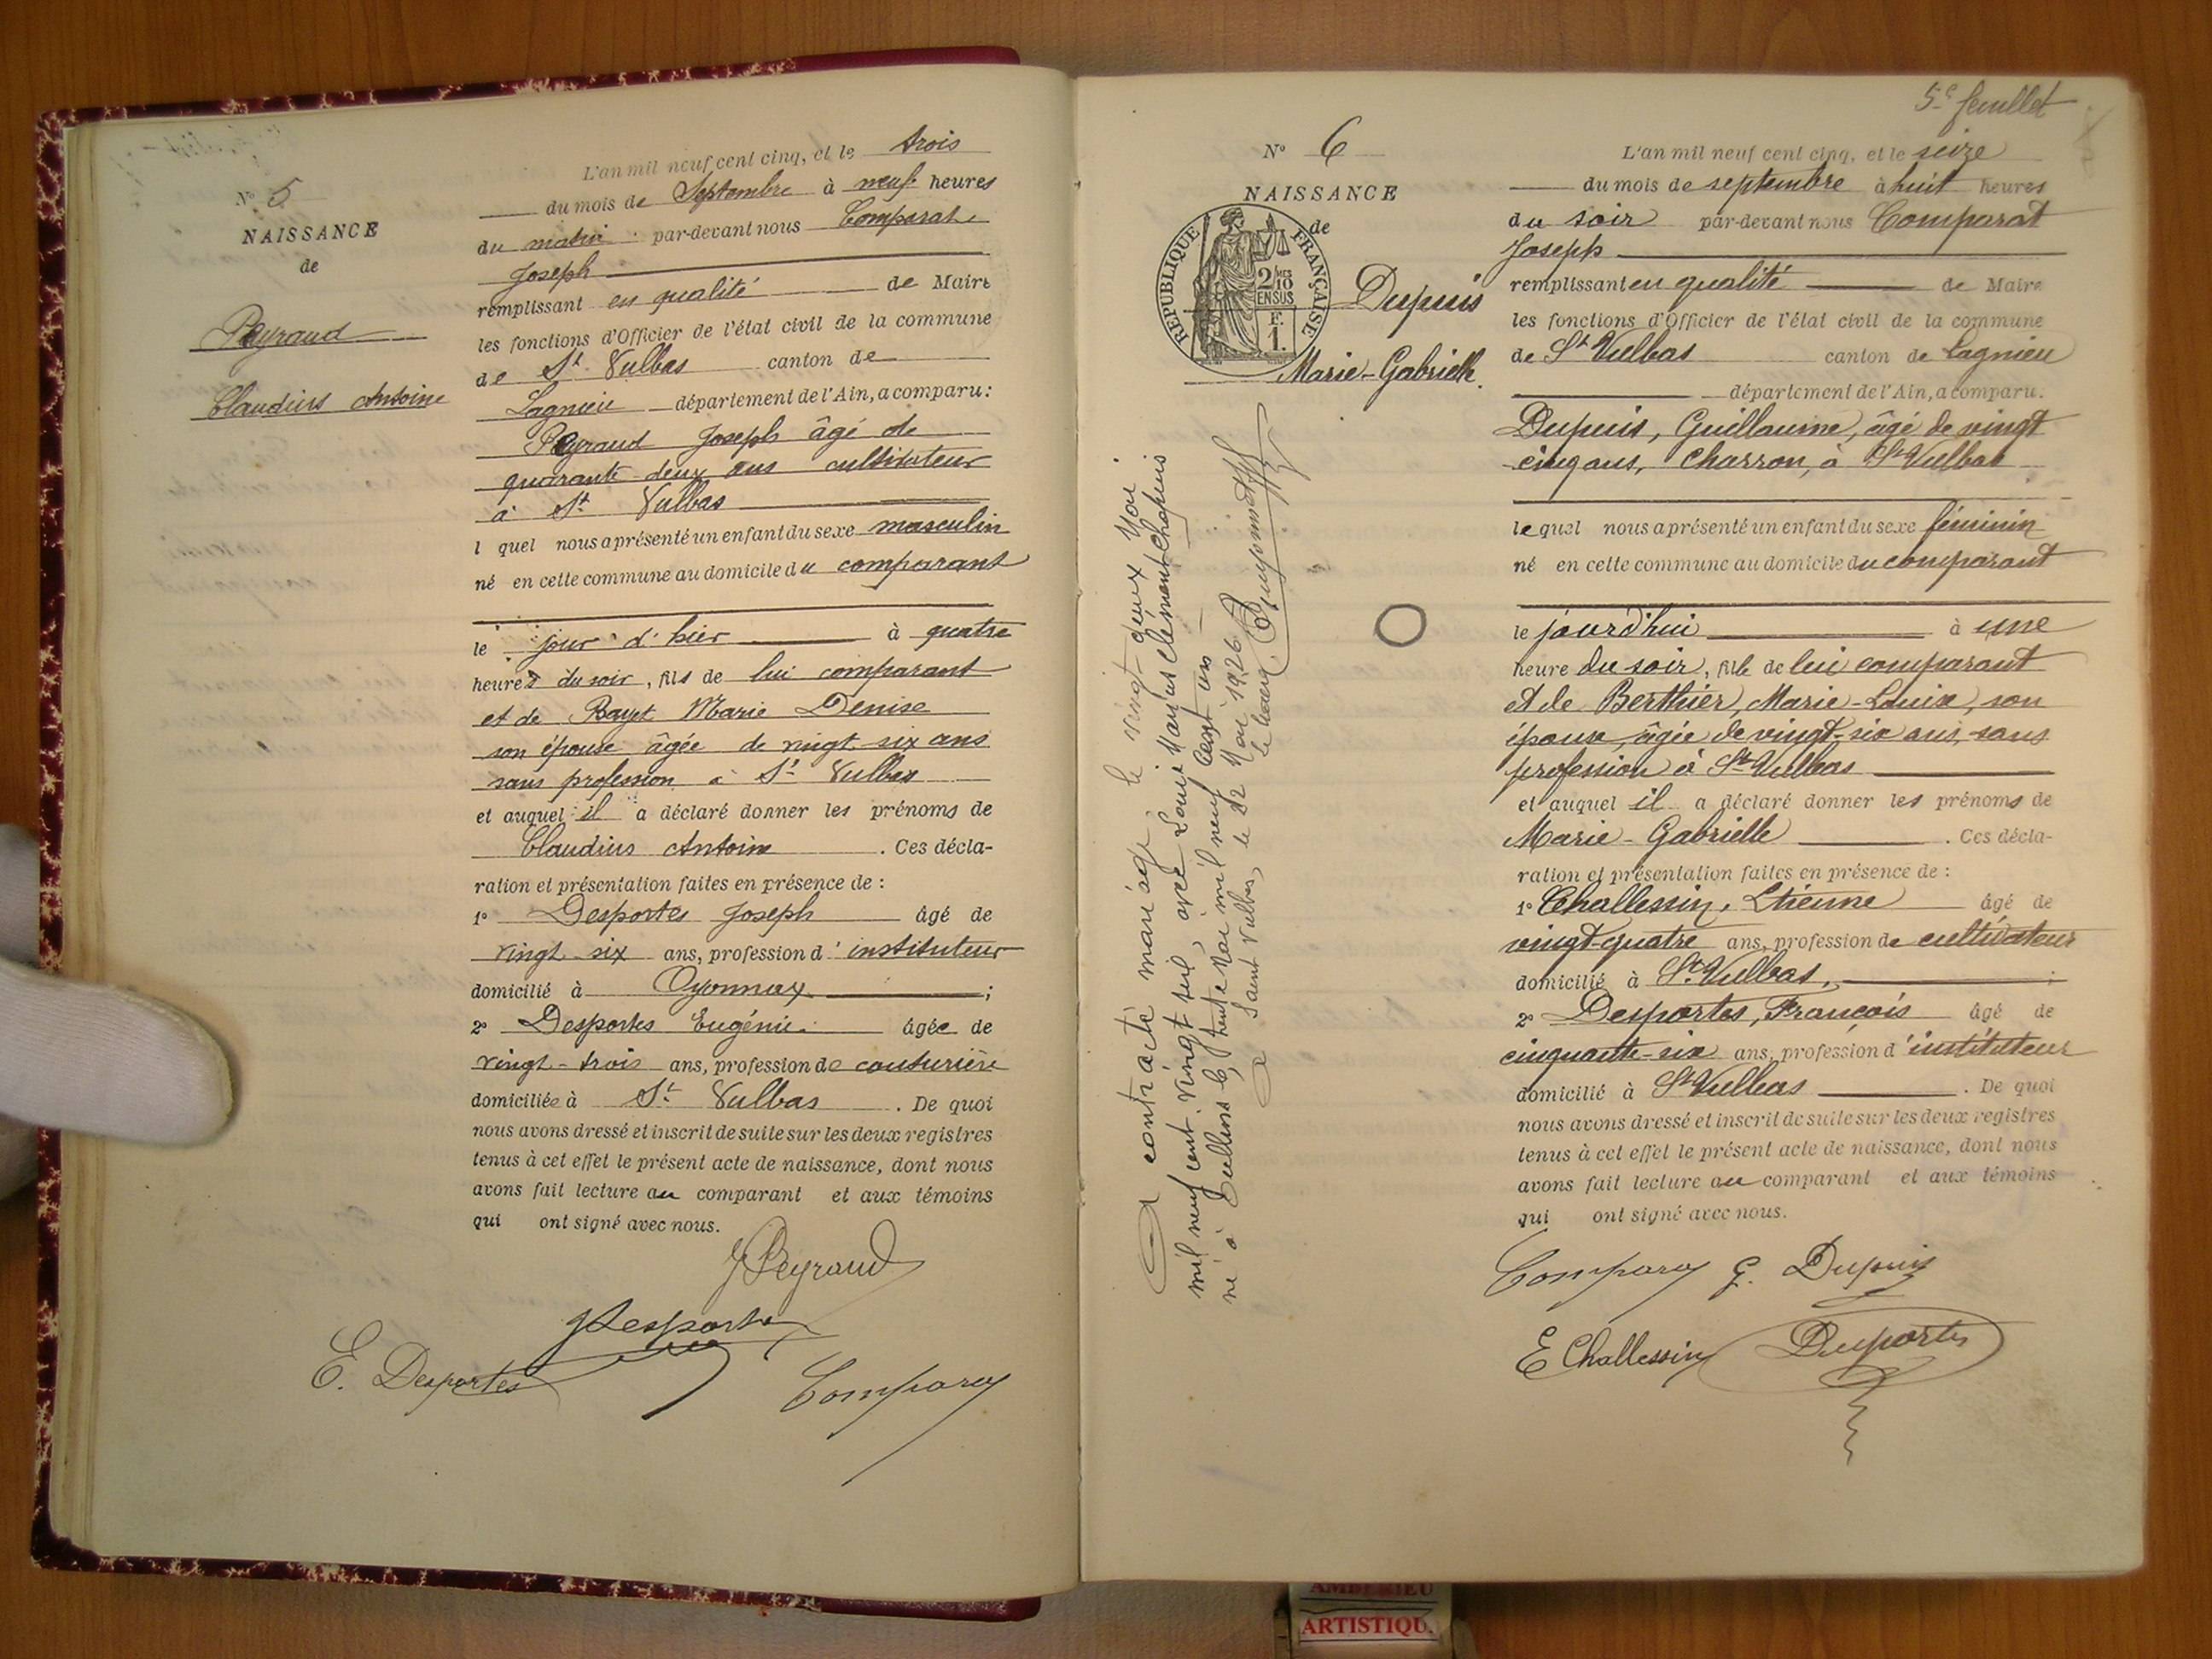 N° 5
NAISSANCE
de
Peyraud
Claudius Antoine
L'an mil neuf cent cinq, et le trois
du mois de Septembre à neuf heures
du matin par-devant nous Comparat
Joseph
remplissant en qualité de Maire
les fonctions d'Officier de l'état civil de la commune
de St Vulbas canton de
Lagnieu département de l'Ain, a comparu:
Peyraud Joseph âgé de
quarante-deux ans cultivateur
à St Vulbas
l quel nous a présenté un enfant du sexe masculin
né en cette commune au domicile du comparant
le jour d'hier à quatre
heures du soir, fils de lui comparant
et de Bayet Marie Denise
son épouse âgée de vingt-six ans
sans profession à St Vulbas
et auquel il a déclaré donner les prénoms de
Claudius Antoine . Ces décla-
ration et présentation faites en présence de :
1° Desportes Joseph âgé de
vingt-six ans, profession d'instituteur
domicilié à Oyonnax ;
2° Desportes Eugénie âgée de
vingt-trois ans, profession de couturière
domiciliée à St Vulbas . De quoi
nous avons dressé et inscrit de suite sur les deux registres
tenus à cet effet le présent acte de naissance, dont nous
avons fait lecture au comparant et aux témoins
qui ont signé avec nous.
J Peyraud
J Desportes
E. Desportes
Comparat
5e feuillet
N° 6
NAISSANCE
de
REPUBLIQUE FRANÇAISE
2/10 EN SUS
F.
1.
Dupuis
Marie-Gabrielle.
A contracté mariage, le vingt-deux Mai
mil neuf cent vingt six, avec Louis Marius Clément Chapuis
né à Cullins le trente Mai mil neuf cent un
à Saint Vulbas, le 22 Mai 1926
Le Maire,
L'an mil neuf cent cinq, et le seize
du mois de septembre à huit heures
du soir par-devant nous Comparat
Joseph
remplissant en qualité de Maire
les fonctions d'Officier de l'état civil de la commune
de St Vulbas canton de Lagnieu
département de l'Ain, a comparu.
Dupuis, Guillaume, âgé de vingt
cinq ans, Charron, à St Vulbas
lequel nous a présenté un enfant du sexe féminin
né en cette commune au domicile du comparant
le jourd'hui à une
heure du soir, fille de lui comparant
et de Berthier, Marie-Louise, son
épouse, âgée de vingt-six ans, sans
profession à St Vulbas
et auquel il a déclaré donner les prénoms de
Marie-Gabrielle . Ces décla-
ration et présentation faites en présence de :
1° Challessin, Etienne âgé de
vingt-quatre ans, profession de cultivateur
domicilié à St Vulbas, ;
2° Desportes, François âgé de
cinquante-six ans, profession d'instituteur
domicilié à St Vulbas . De quoi
nous avons dressé et inscrit de suite sur les deux registres
tenus à cet effet le présent acte de naissance, dont nous
avons fait lecture au comparant et aux témoins
qui ont signé avec nous.
Comparat G. Dupuis
E Challessin Desportes
AMBERIEU
ARTISTIQU